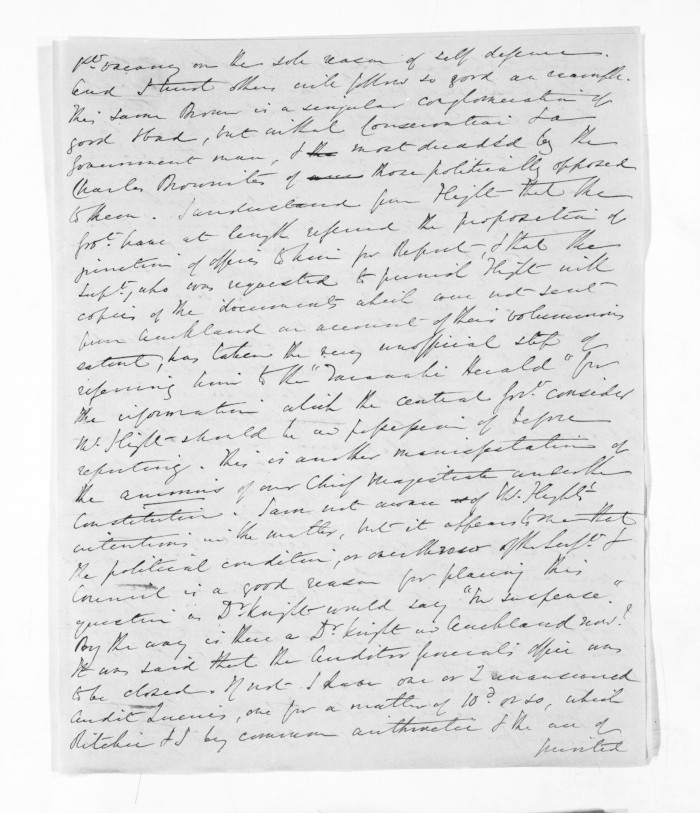 vacancy on the sole reason of self defence.
And I trust others will follow so good an example.
This same Brown is a singular conglomeration of
good & bad, but withal Conservative & a
Government man, & the most dreaded by the
Charles Brownites of those politically opposed
to them. I understand from Flight that the
Govt. have at length referred the proposition of
junction of offices to him for Report, & that the
Supt., who was requested to furnish Flight with
copies of the documents which were not sent
from Auckland on account of their voluminous
extent, has taken the very unofficial step of
referring him to the "Taranaki Herald" for
the information which the central Govt. consider
Mr. Flight should be in possession of before
reporting. This is another manifestation of
the animus of our Chief Magistrate under the
Constitution. I am not aware of Mr. Flight's
intentions in the matter, but it appears to me that
the political condition, or overthrow of the Supt. &
Council is a good reason for placing this
question as Dr Knight would say "in suspense."
By the way is there a Dr Knight in Auckland now?
It was said that the Auditor General's office was
to be closed. If not I have one or 2 unanswered
Audit Queries, one for a matter of 10d. or so, which
Ritchie & I by common arithmetic & the use of
printed